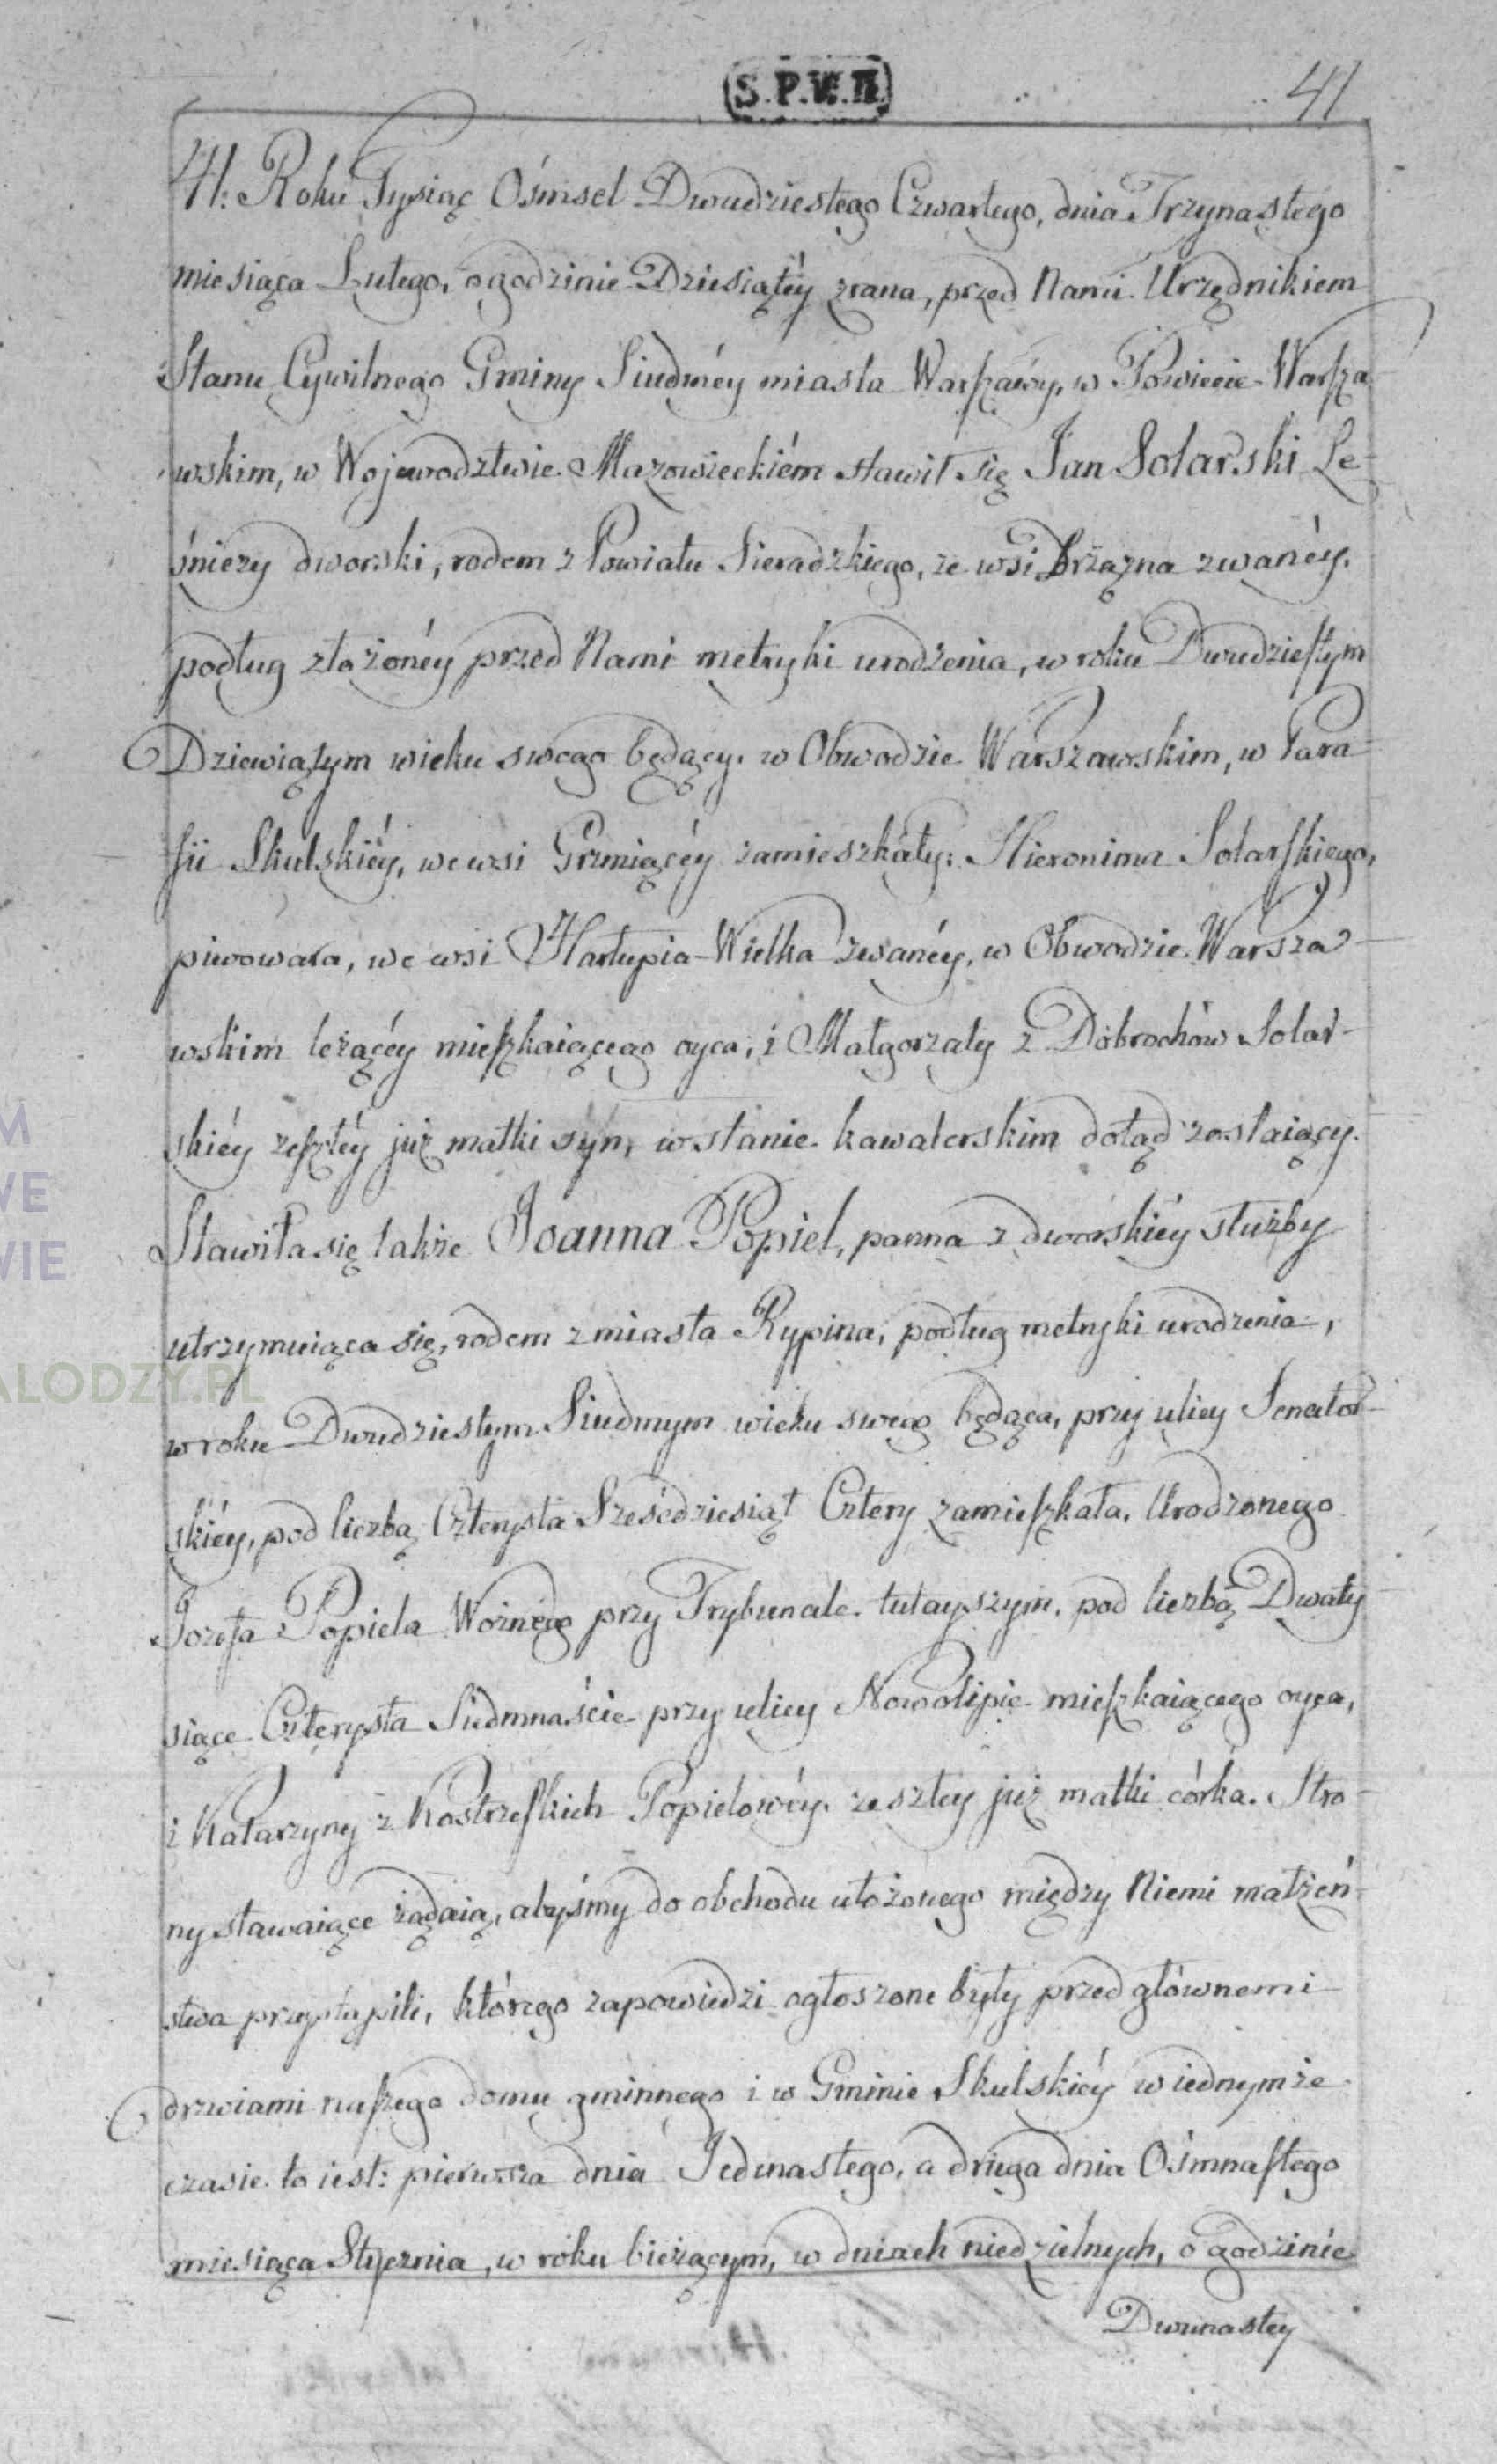 S.P.W.II.
41
41: Roku Tysiąc Ośmset Dwudziestego Czwartego, dnia Trzynastego
miesiąca Lutego, o godzinie Dziesiątéy zrana, przed Nami Urzędnikiem
Stanu Cywilnego Gminy Siudméy miasta Warszawy, w Powiecie Warsza-
wskim, w Wojewodztwie Mazowieckiém stawił się Jan Solarski Le-
śniczy dworski, rodem z Powiatu Sieradzkiego, ze wsi Brzązna zwanéy,
podług złożonéy przed Nami metryki urodzenia, w roku Dwudziestym
Dziewiątym wieku swego będący, w Obwodzie Warszawskim, w Para-
fii Skulskiéy, we wsi Grzmiącéy zamieszkały; Hieronima Solarskiego,
piwowara, we wsi Harłupia-Wielka zwanéy, w Obwodzie Warsza-
wskim leżącéy mieszkaiącego oyca, i Małgorzaty z Dobrochów Solar-
skiéy zeszłéy już matki syn, w stanie kawalerskim dotąd zostaiący.
Stawiła się także Joanna Popiel, panna z dworskiéy służby
utrzymuiąca się, rodem z miasta Rypina, podług metryki urodzenia,
w roku Dwudziestym Siudmym wieku swego będąca, przy ulicy Senator-
skiéy, pod liczbą Czterysta Sześćdziesiąt Cztery zamieszkała, Urodzonego
Jozefa Popiela Woznego przy Trybunale tutayszym, pod liczbą Dwaty-
siące Czterysta Siedmnaście przy ulicy Nowolipie mieszkaiącego oyca,
i Katarzyny z Kostrzeskich Popielowéy, zeszłey już matki córka. Stro-
ny stawaiące żądaią, abyśmy do obchodu ułożonego między Niemi małżeń-
stwa przystąpili, którego zapowiedzi ogłoszone były przed głównemi
drzwiami naszego domu gminnego i w Gminie Skulskiéy w iednymże
czasie to iest: pierwsza dnia Jedenastego, a druga dnia Ośmnastego
miesiąca Stycznia, w roku bieżącym, w dniach niedzielnych, o godzinie
Dwunastey
M
WE
WIE
ALODZY.PL